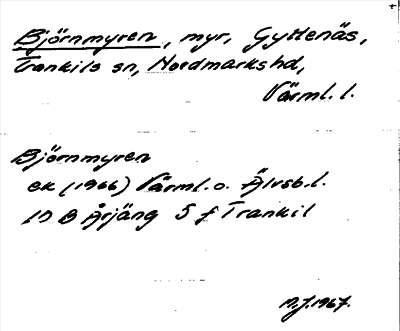 Björnmyren, myr, Gyttenäs,
Trankils sn, Nordmarks hd,
Värml. l.
Björnmyren
ek (1966) Värml. o. Älvsb. l.
10 B Årjäng S f Trankil
M.J. 1967.